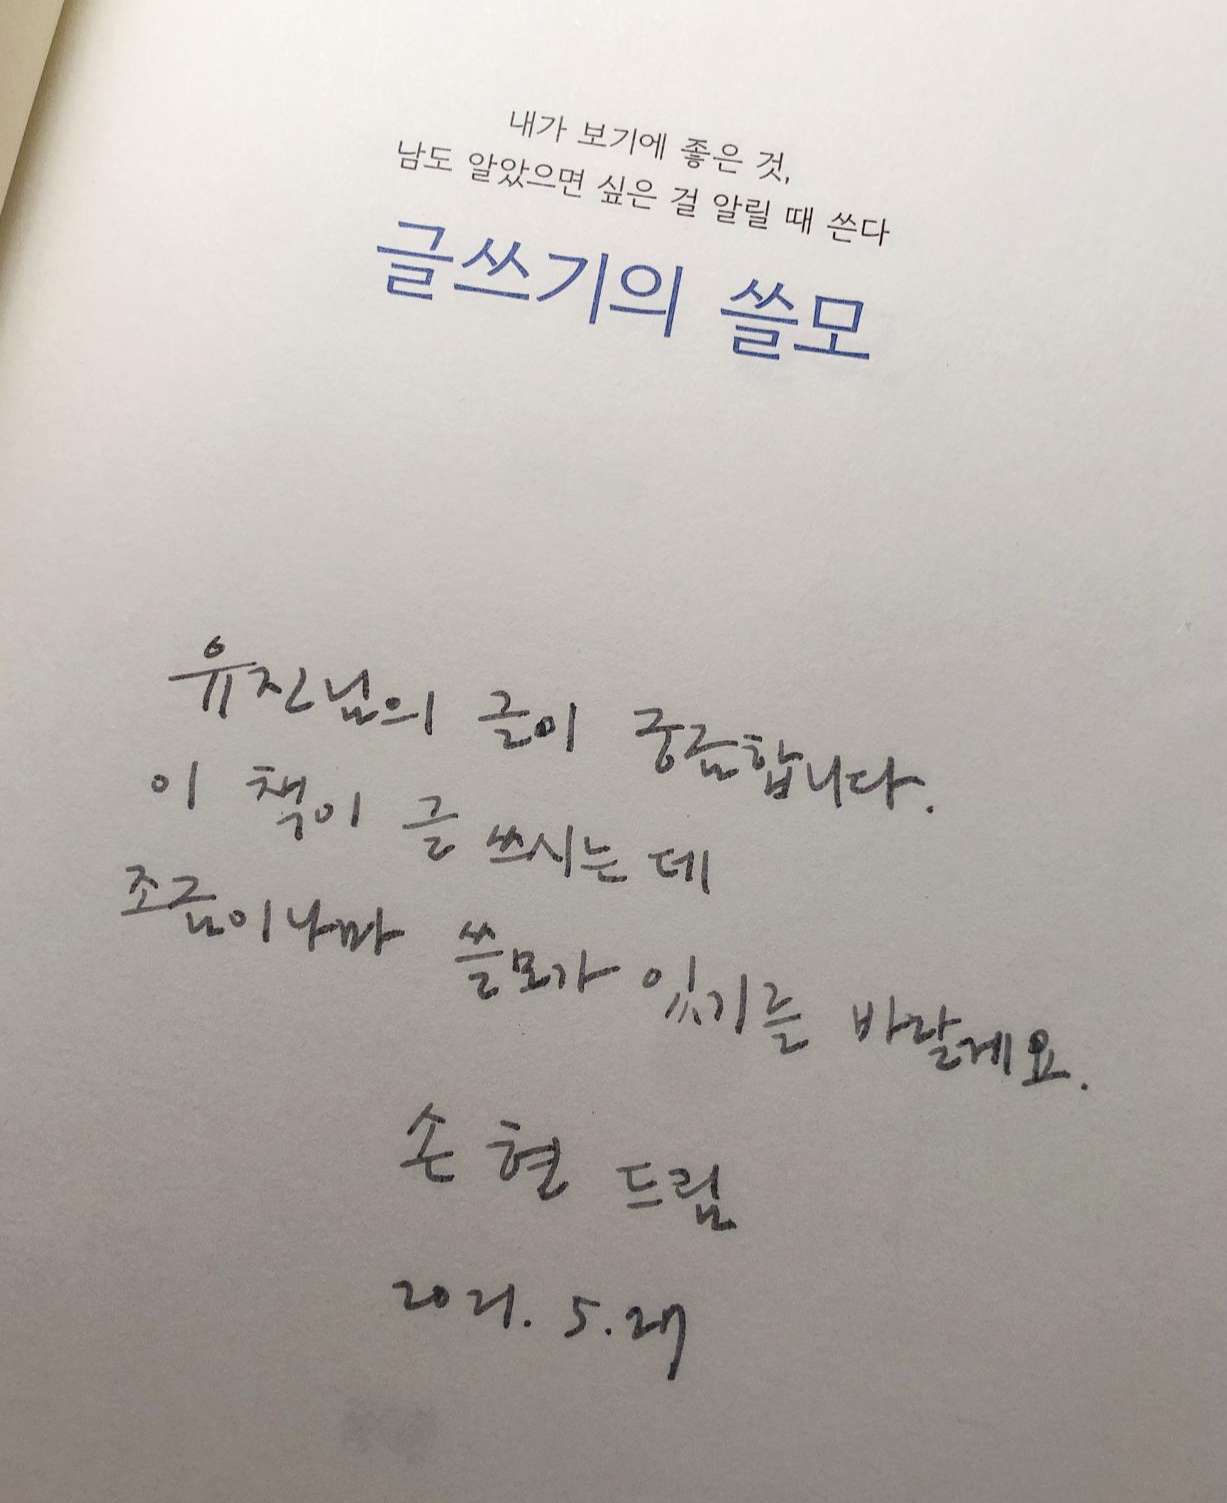 내가 보기에 좋은 것,
남도 알았으면 싶은 걸 알릴 때 쓴다
글쓰기의 쓸모
유진님의 글이 궁금합니다.
이 책이 글 쓰시는 데
조금이나마 쓸모가 있기를 바랄게요.
손현 드림
2021. 5. 27